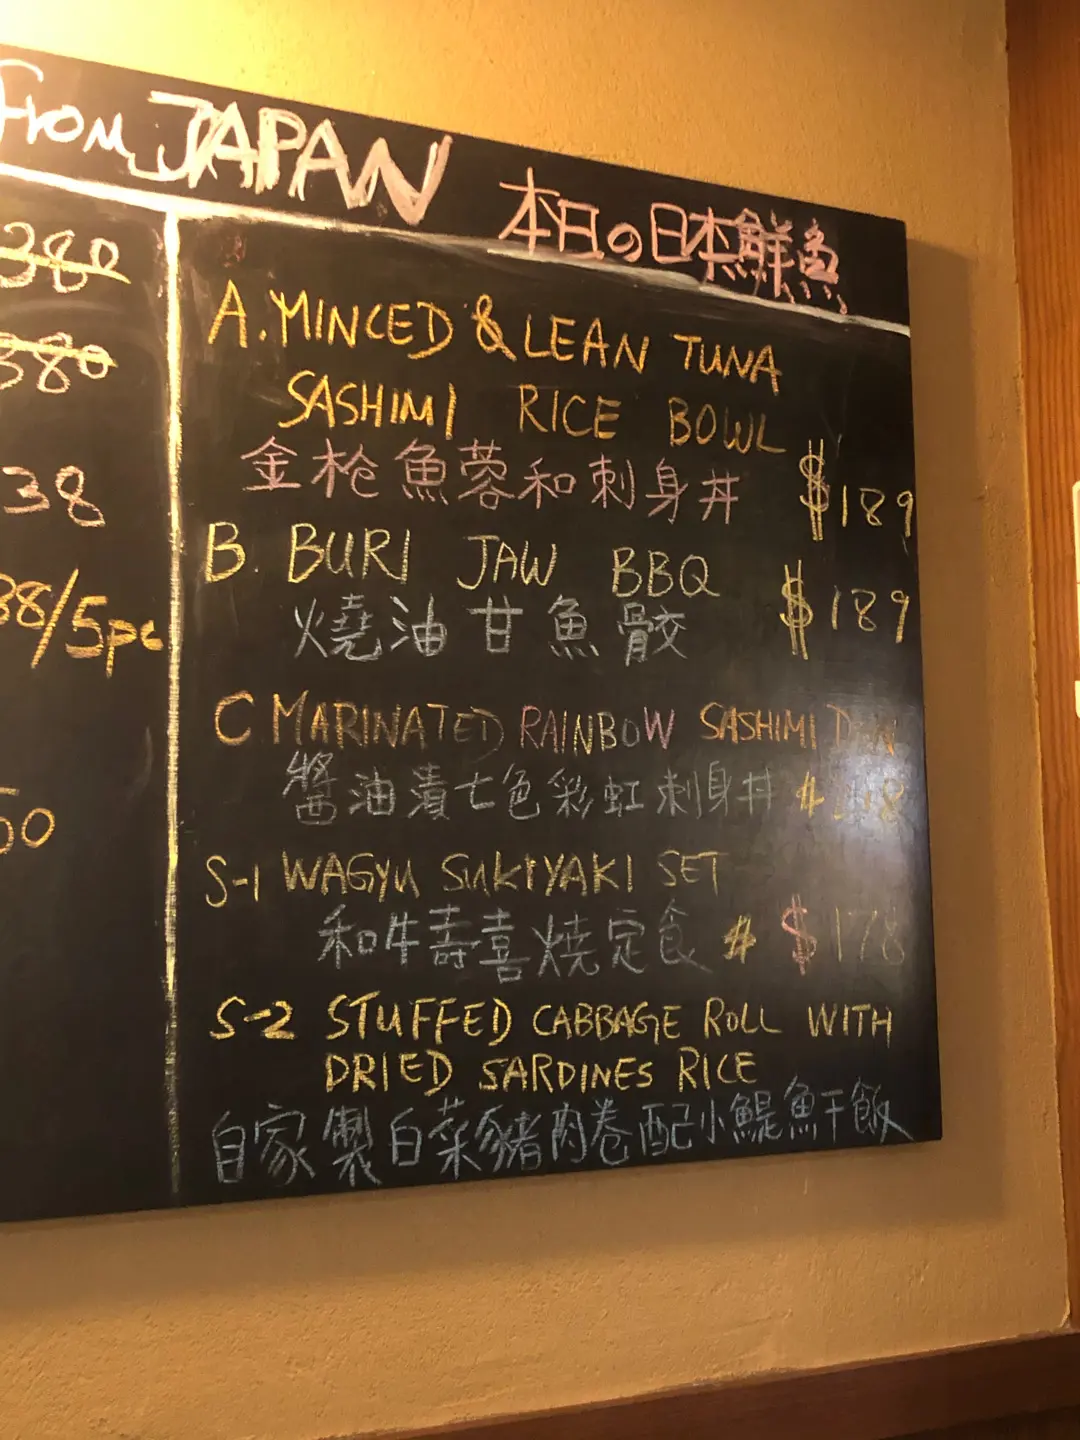 From JAPAN 本日の日本鮮魚
380
380
38
38/5pc
50
A. MINCED & LEAN TUNA
SASHIMI RICE BOWL
金枪魚蓉和刺身丼 $189
B. BURI JAW BBQ
燒油甘魚骹 $189
C MARINATED RAINBOW SASHIMI DON
醬油漬七色彩虹刺身丼
S-1 WAGYU SUKIYAKI SET
和牛壽喜燒定食 $178
S-2 STUFFED CABBAGE ROLL WITH
DRIED SARDINES RICE
自家製白菜豬肉卷配小鯷魚干飯